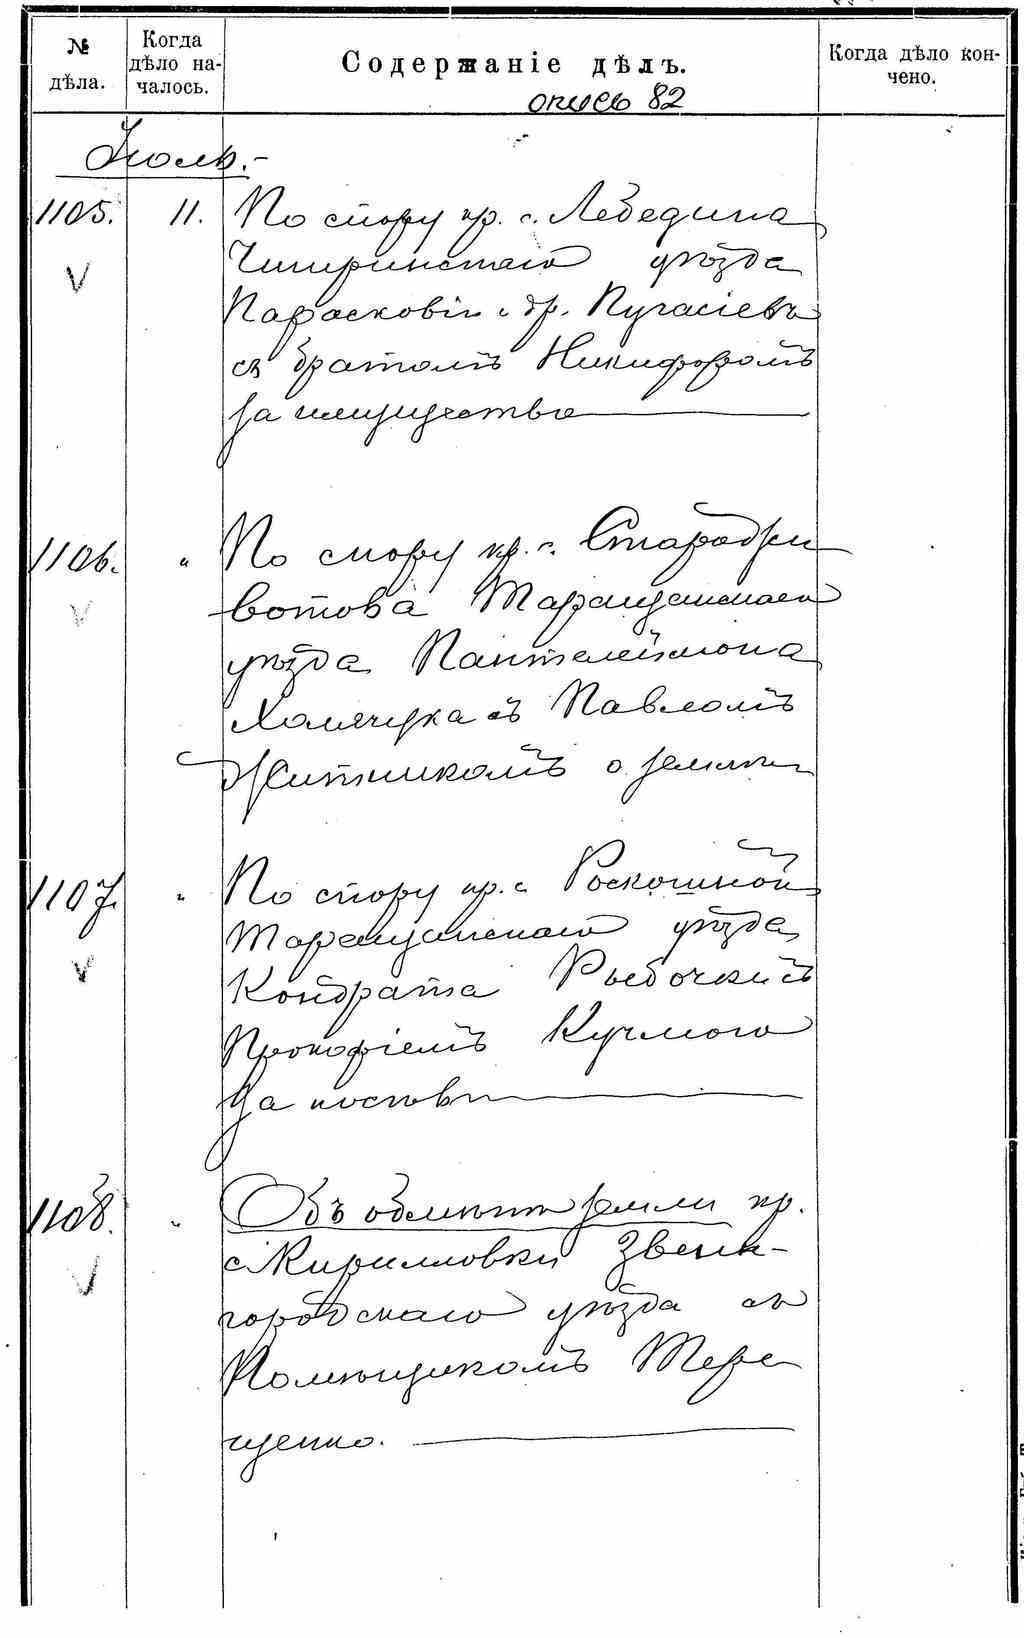 № дѣла.
Когда дѣло началось.
Содержаніе дѣлъ.
Когда дѣло кончено.
опись 82
Іюль.-
1105. 11. По спору кр. с. Лебедина
Чигиринскаго уѣзда
Парасковіи и др. Пугасіевъ
съ братомъ Никифоромъ
за имущество
1106. " По спору кр. с. Стараджи
вотова Таращанскаго
уѣзда Пантелеймона
Хомячука съ Павломъ
Житникомъ о землѣ
1107. " По спору кр. с. Роскошной
Таращанскаго уѣзда
Кондрата Рыбочки съ
Прокофіемъ Кучмою
За посѣвъ
1108. " Объ обмѣнѣ земли кр.
с. Кирилловки Звени-
городскаго уѣзда съ
Помѣщикомъ Тере
щенко.